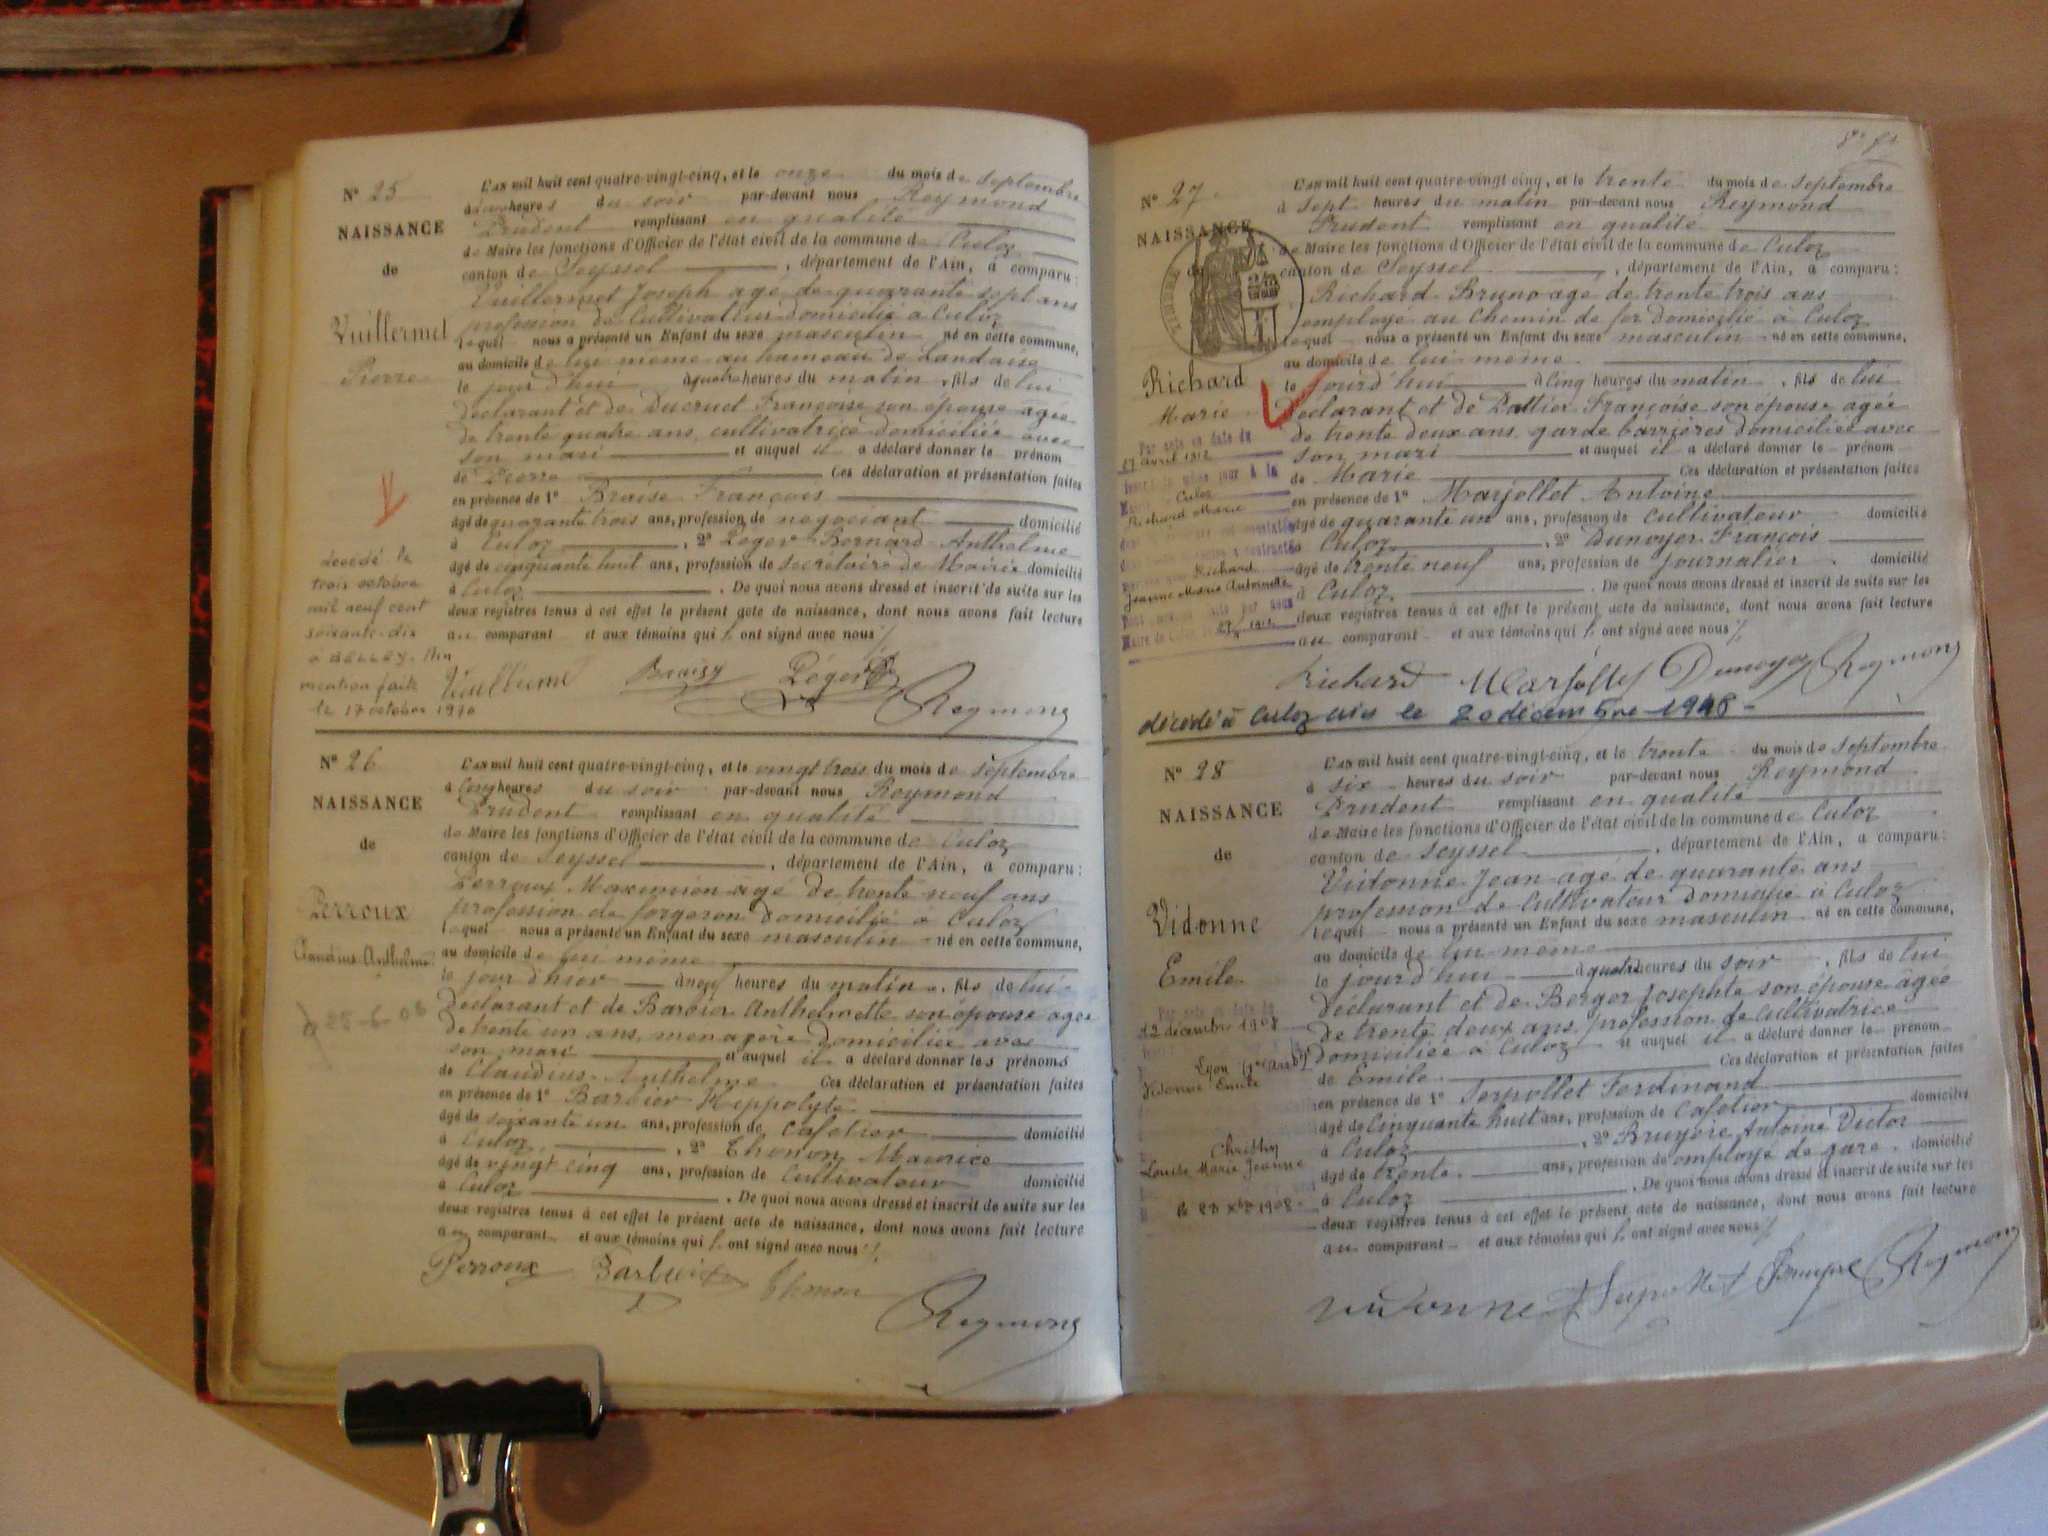 N° 25
NAISSANCE
de
Vuillermet
Pierre
décédé le
trois octobre
mil neuf cent
soixante-dix
à BELLEY. Ain
mention faite
le 17 octobre 1970
L'an mil huit cent quatre-vingt-cinq, et le onze du mois de septembre
heures du soir par-devant nous Reymond
Prudent remplissant en qualité
de Maire les fonctions d'Officier de l'état civil de la commune de Culoz
canton de Seyssel, département de l'Ain, a comparu:
Vuillermet Joseph agé de quarante sept ans
profession de Cultivateur domicilié à Culoz
lequel nous a présenté un Enfant du sexe masculin né en cette commune,
au domicile de lui meme au hameau de Landaise
le jour d'hui à quatre heures du matin, fils de lui
déclarant et de Ducruet Françoise son épouse agée
de trente quatre ans, cultivatrice domiciliée avec
son mari et auquel il a déclaré donner le prénom
de Pierre Ces déclaration et présentation faites
en présence de 1° Braise François
âgé de quarante trois ans, profession de négociant domicilié
à Culoz, 2° Léger Bernard Anthelme
âgé de cinquante huit ans, profession de secrétaire de Mairie domicilié
à Culoz. De quoi nous avons dressé et inscrit de suite sur les
deux registres tenus à cet effet le présent acte de naissance, dont nous avons fait lecture
au comparant et aux témoins qui ont signé avec nous
Léger Reymond
N° 26
NAISSANCE
de
Perroux
Claudius Anthelme
25-6-08
L'an mil huit cent quatre-vingt-cinq, et le vingt trois du mois de septembre
à cinq heures du soir par-devant nous Reymond
Prudent remplissant en qualité
de Maire les fonctions d'Officier de l'état civil de la commune de Culoz
canton de Seyssel, département de l'Ain, a comparu:
Perroux Maximien agé de trente neuf ans
profession de forgeron domicilié à Culoz
lequel nous a présenté un Enfant du sexe masculin né en cette commune,
au domicile de lui meme
le jour d'hier à neuf heures du matin, fils de lui
déclarant et de Barbier Anthelmette son épouse agée
de trente un ans, menagère domiciliée avec
son mari et auquel il a déclaré donner les prénoms
de Claudius Anthelme Ces déclaration et présentation faites
en présence de 1° Barbier Hippolyte
âgé de soixante un ans, profession de cafetier domicilié
à Culoz, 2° Thonon Maurice
âgé de vingt cinq ans, profession de Cultivateur domicilié
à Culoz. De quoi nous avons dressé et inscrit de suite sur les
deux registres tenus à cet effet le présent acte de naissance, dont nous avons fait lecture
au comparant et aux témoins qui ont signé avec nous
Perroux Barbier Thonon
Reymond
N° 27
NAISSANCE
de
Richard
Marie
Par acte en date du
27 avril 1912
Culoz
Richard Marie
Richard
Jeanne Marie Antoinette
L'an mil huit cent quatre-vingt-cinq, et le trente du mois de septembre
à sept heures du matin par-devant nous Reymond
Prudent remplissant en qualité
de Maire les fonctions d'Officier de l'état civil de la commune de Culoz
canton de Seyssel, département de l'Ain, a comparu:
Richard Bruno agé de trente trois ans
employé au Chemin de fer domicilié à Culoz
lequel nous a présenté un Enfant du sexe masculin né en cette commune,
au domicile de lui même
le jourd'hui à cinq heures du matin, fils de lui
déclarant et de Françoise son épouse agée
de trente deux ans garde barrières domiciliée avec
son mari et auquel il a déclaré donner le prénom
de Marie Ces déclaration et présentation faites
en présence de 1° Marjollet Antoine
âgé de quarante un ans, profession de cultivateur domicilié
à Culoz, 2° Dunoyer François
âgé de trente neuf ans, profession de journalier domicilié
à Culoz. De quoi nous avons dressé et inscrit de suite sur les
deux registres tenus à cet effet le présent acte de naissance, dont nous avons fait lecture
au comparant et aux témoins qui ont signé avec nous
Richard Marjollet Dunoyer Reymond
décédé à Culoz Ain le 20 décembre
N° 28
NAISSANCE
de
Vidonne
Emile
12 décembre 1908
Lyon
Vidonne Emile
Louise Marie Jeanne
L'an mil huit cent quatre-vingt-cinq, et le trente du mois de septembre
à six heures du soir par-devant nous Reymond
Prudent remplissant en qualité
de Maire les fonctions d'Officier de l'état civil de la commune de Culoz
canton de Seyssel, département de l'Ain, a comparu:
Vidonne Jean agé de quarante ans
profession de Cultivateur domicilié à Culoz
lequel nous a présenté un Enfant du sexe masculin né en cette commune,
au domicile de lui même
le jourd'hui à quatre heures du soir, fils de lui
déclarant et de Berger Josephte son épouse âgée
de trente deux ans profession de cultivatrice
domiciliée à Culoz et auquel il a déclaré donner le prénom
de Emile Ces déclaration et présentation faites
en présence de 1° Serpollet Ferdinand
âgé de cinquante huit ans, profession de Cafetier domicilié
à Culoz, 2° Bruyère Antoine Victor
âgé de trente ans, profession de employé de gare domicilié
à Culoz. De quoi nous avons dressé et inscrit de suite sur les
deux registres tenus à cet effet le présent acte de naissance, dont nous avons fait lecture
au comparant et aux témoins qui ont signé avec nous
Vidonne Serpollet Bruyère Reymond